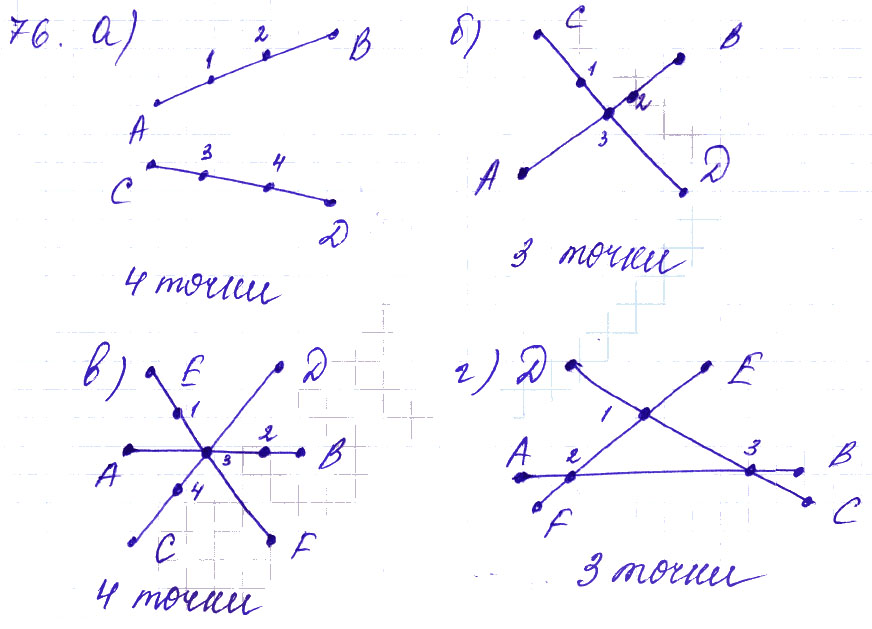 76. а)
2
B
1
A
C
3
4
D
4 точки
б)
C
B
1
2
3
A
D
3 точки
в)
E
D
1
2
A
3
B
4
C
F
4 точки
г)
D
E
1
A
2
3
B
F
C
3 точки